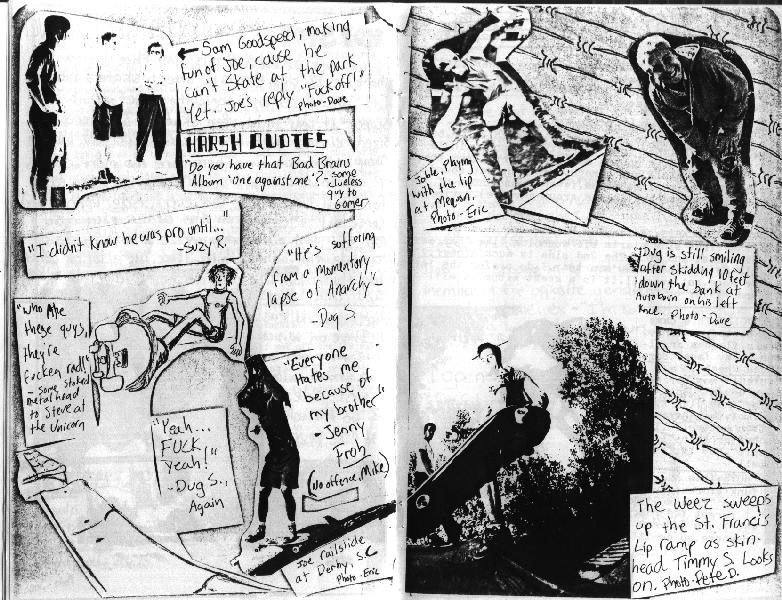 ← Sam Goodspeed, making
fun of Joe, cause he
can't skate at the park
yet. Joe's reply "Fuck off!"
Photo - Dave
HARSH QUOTES
"Do you have that Bad Brains
Album 'One against one'?" - some
clueless
guy to
Gomer
"I didn't know he was pro until..."
- Suzy R.
"He's suffering
from a momentary
lapse of Anarchy"
- Dug S.
"Who are
these guys,
they're
fucken rad!"
- Some stoked
metal head
to Steve at
the Unicorn
"Everyone
Hates me
because of
my brother"
- Jenny
Froh
(No offence, Mike)
"Yeah...
FUCK
Yeah!"
- Dug S.,
Again
Joe railslide
at Derby, SC
Photo - Eric
Joble, playing
with the lip
at Mequon.
Photo - Eric
Dug is still smiling
after skidding 10 feet
down the bank at
Autobahn on his left
knee. Photo - Dave
The Weez sweeps
up the St. Francis
Lip ramp as skin-
head Timmy S. Looks
on. Photo - Pete D.